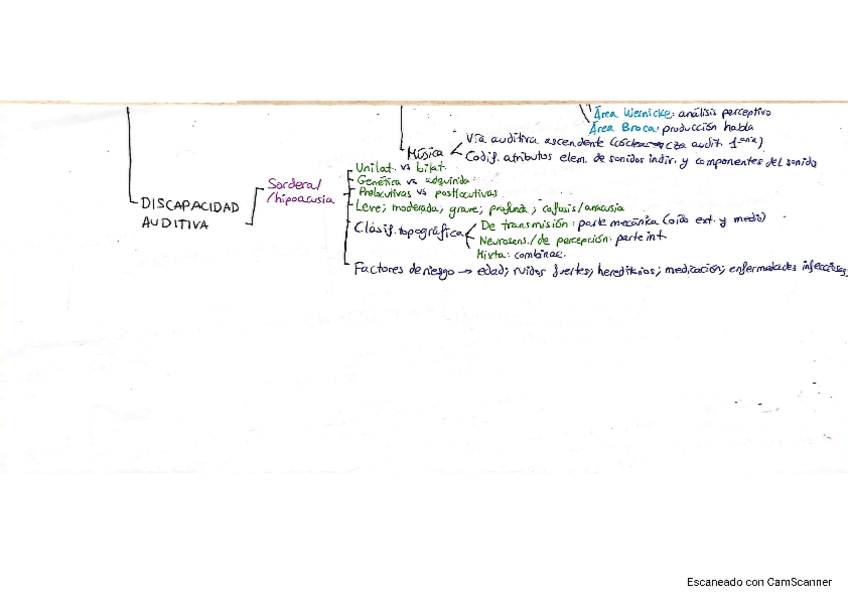 Área Wernicke: análisis perceptivo
Área Broca: producción habla
Música
Vía auditiva ascendente (cóclea → cza audit. 1ª)
Codif. atributos elem. de sonidos indiv. y componentes del sonido
DISCAPACIDAD
AUDITIVA
Sordera/
/hipoacusia
Unilat. vs bilat.
Genética vs adquirida
Prelocutivas vs postlocutivas
Leve; moderada, grave; profunda; cofosis/anacusia
Clasif. topográfica
De transmisión: parte mecánica (oído ext. y medio)
Neurosens./de percepción: parte int.
Mixta: combinac.
Factores de riesgo → edad; ruidos fuertes; hereditarios; medicación; enfermedades infecciosas
Escaneado con CamScanner